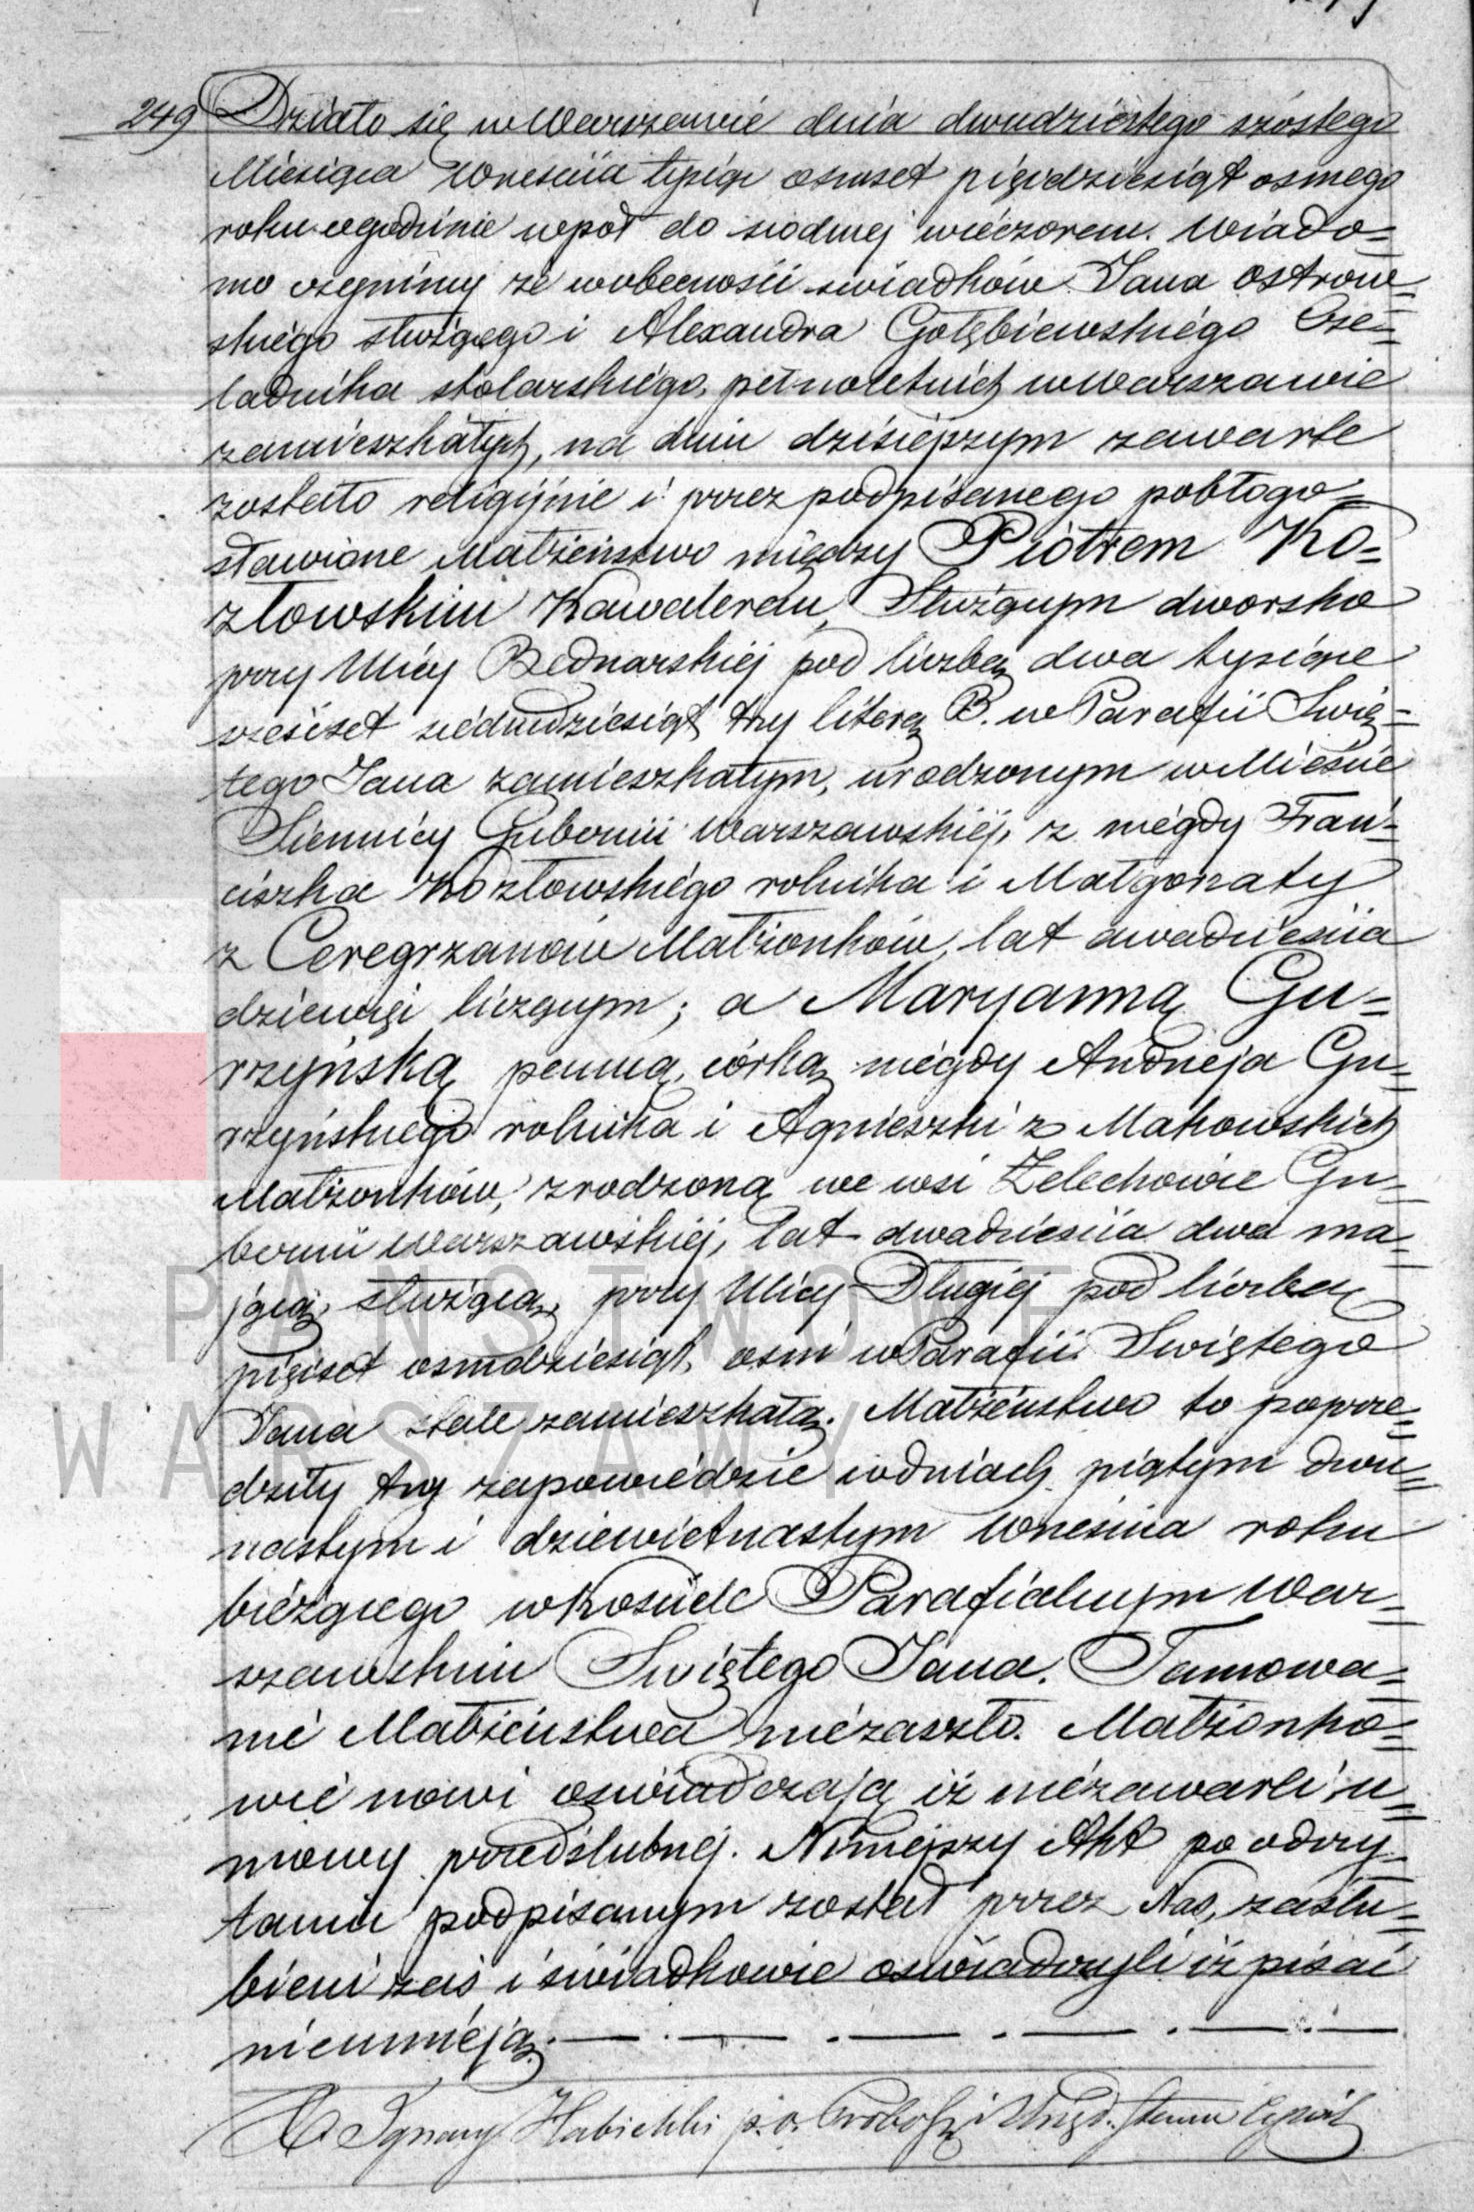 249 Działo się w Warszawie dnia dwudziestego szóstego
Miesiąca Września tysiąc osmset pięćdziesiąt osmego
roku o godzinie wpół do siodmej wieczorem. Wiado=
mo czynimy że w obecności świadków Jana Ostrow=
skiego służącego i Alexandra Gołębiewskiego Cze=
ladnika stolarskiego, pełnoletnich w Warszawie
zamieszkałych, na dniu dzisiejszym zawarte
zostało religijnie i przez podpisanego pobłogo=
sławione Małżeństwo między Piotrem Ko=
złowskim Kawalerem, Służącym dworsko
przy Ulicy Bednarskiej pod liczbą dwa tysiące
sześćset siedmdziesiąt trzy literą B. w Parafii Świę=
tego Jana zamieszkałym, urodzonym w Mieście
Siennicy Gubernii Warszawskiej, z niegdy Fran=
ciszka Kozłowskiego rolnika i Małgorzaty
z Ceregrzanów Małżonków, lat dwadzieścia
dziewięć liczącym; a Maryanną Gu=
rzyńską panną, córką niegdy Andrzeja Gu=
rzyńskiego rolnika i Agnieszki z Makowskich
Małżonków, zrodzoną we wsi Żelechowie Gu=
bernii Warszawskiej, lat dwadzieścia dwa ma=
jącą, służącą, przy Ulicy Długiej pod liczbą
pięćset osmdziesiąt, osm w Parafii Świętego
Jana stale zamieszkałą. Małżeństwo to poprze=
dziły trzy zapowiedzie w dniach piątym dwu=
nastym i dziewiętnastym Września roku
bieżącego w Kościele Parafialnym War=
szawskim Świętego Jana. Tamowa=
nie Małżeństwa niezaszło. Małżonko=
wie nowi oświadczają iż niezawarli u=
mowy przedślubnej. Niniejszy Akt po odczy=
taniu podpisanym został przez Nas, zaślu=
bieni zaś i świadkowie oświadczyli iż pisać
nieumieją.
X Ignacy p. o. Proboszcz i Urzęd. Stanu Cywil.
PAŃSTWOWE
WARSZAWY